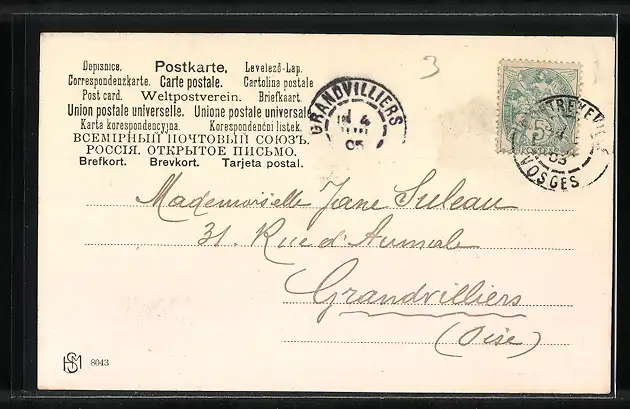 Dopisnice. Postkarte. Levelező-Lap.
Correspondenzkarte. Carte postale. Cartolina postale
Post card. Weltpostverein. Briefkaart.
Union postale universelle. Unione postale universale
Karta korespondencyjna. Korespondenční listek.
ВСЕМІРНЫЙ ПОЧТОВЫЙ СОЮЗЪ.
РОССІЯ. ОТКРЫТОЕ ПИСЬМО.
Brefkort. Brevkort. Tarjeta postal.
3
GRANDVILLIERS
4
05
5
VOSGES
Mademoiselle Jane Suleau
31. Rue d'Aumale
Grandvilliers
(Oise)
HSM 8043